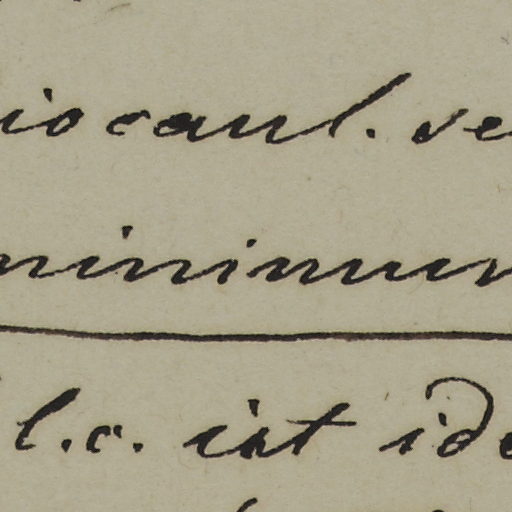 iocaul. ve
minimum
l.c. ist ide